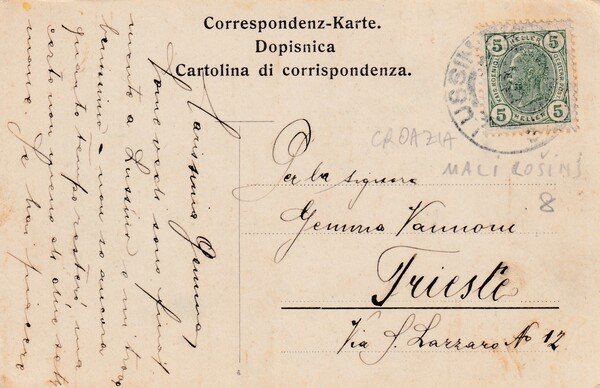 Correspondenz-Karte.
Dopisnica
Cartolina di corrispondenza.
5 HELLER 5
5 HELLER 5
LUSSIN
CROAZIA
MALI LOŠINJ
8
Per la signora
Gemma Vannoni
Trieste
Via S. Lazzaro No 12
Carissima Gemma,
Come vede sono final
mente a Lussino e mi trovo
benissimo - non so ancora
quanto tempo resterò ma
certo non meno di due setti
mane. Se hai piacere